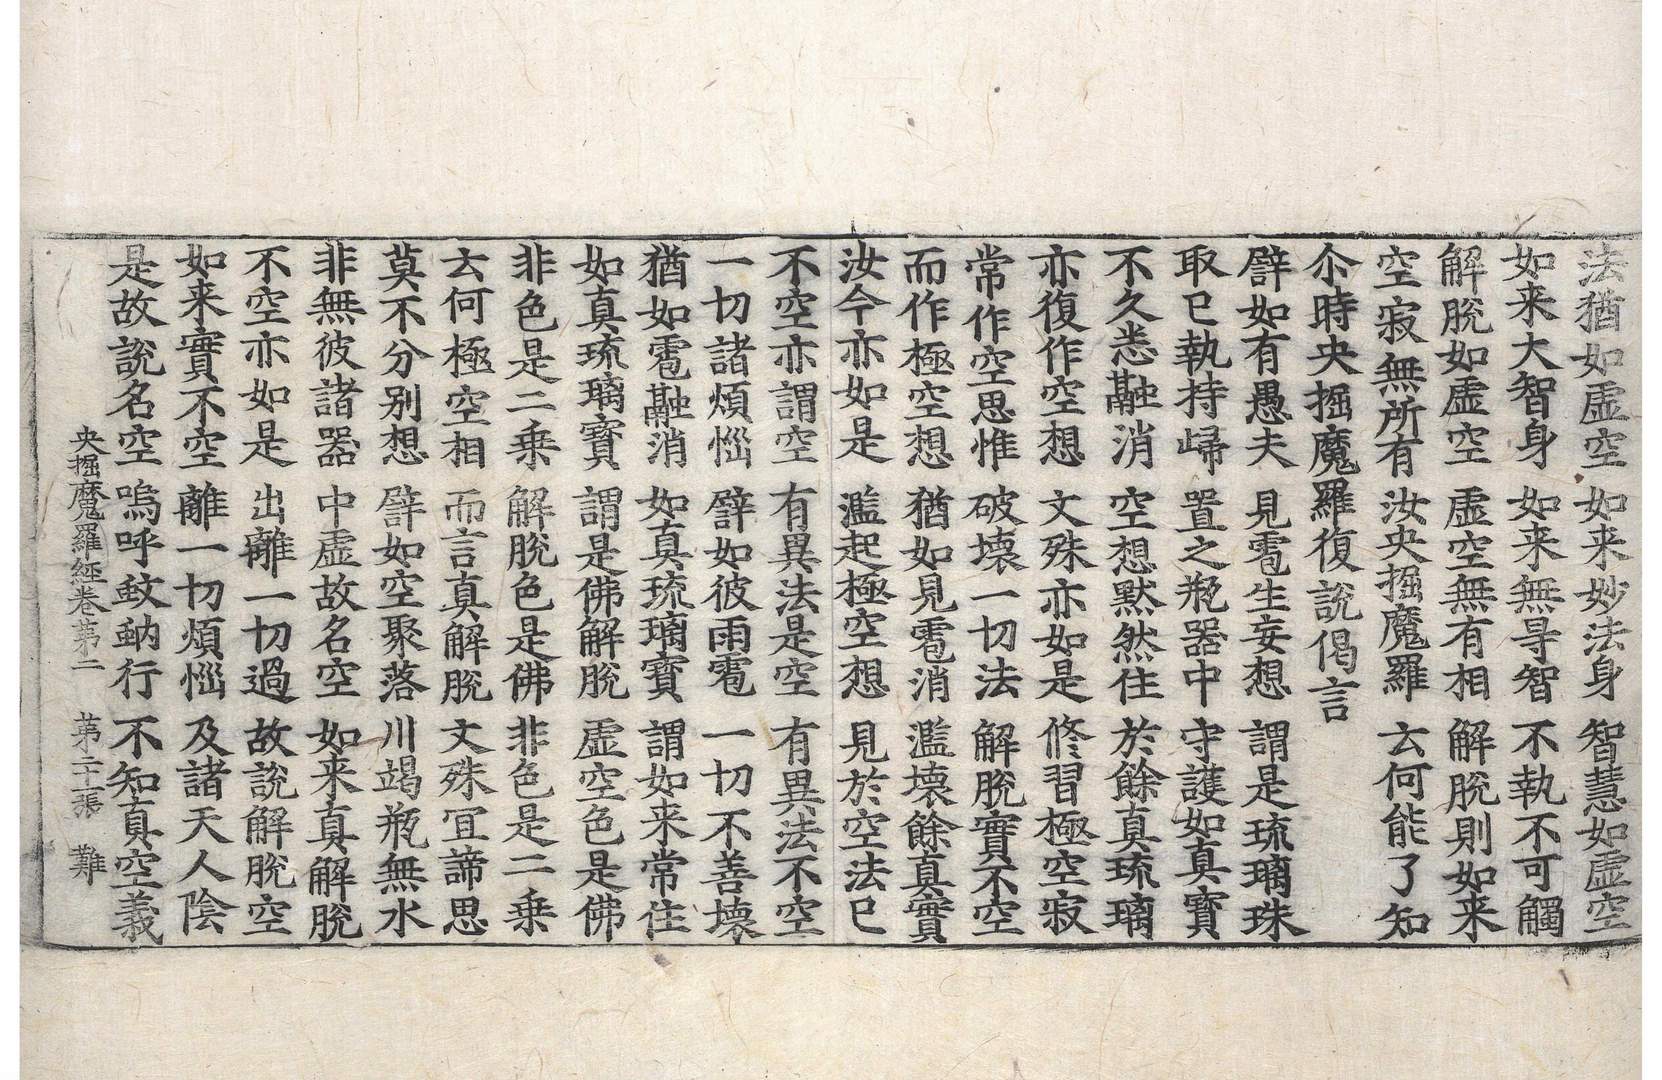 法猶如虛空　如来妙法身　智慧如虛空
如来大智身　如来無㝵智　不執不可觸
解脫如虛空　虛空無有相　解脫則如来
空寂無所有　汝央掘魔羅　云何能了知
尒時央掘魔羅復說偈言
譬如有愚夫　見雹生妄想　謂是琉璃珠
取已執持歸　置之瓶器中　守護如真寶
不久悉融消　空想默然住　於餘真琉璃
亦復作空想　文殊亦如是　修習極空寂
常作空思惟　破壞一切法　解脫實不空
而作極空想　猶如見雹消　濫壞餘真實
汝今亦如是　濫起極空想　見於空法已
不空亦謂空　有異法是空　有異法不空
一切諸煩惱　譬如彼雨雹　一切不善壞
猶如雹融消　如真琉璃寶　謂如来常住
如真琉璃寶　謂是佛解脫　虛空色是佛
非色是二乗　解脫色是佛　非色是二乗
云何極空相　而言真解脫　文殊冝諦思
莫不分別想　譬如空聚落　川竭瓶無水
非無彼諸器　中虛故名空　如来真解脫
不空亦如是　出離一切過　故說解脫空
如来實不空　離一切煩惱　及諸天人陰
是故說名空　嗚呼蚊蚋行　不知真空義
央掘魔羅經卷第二　第二十一張　難